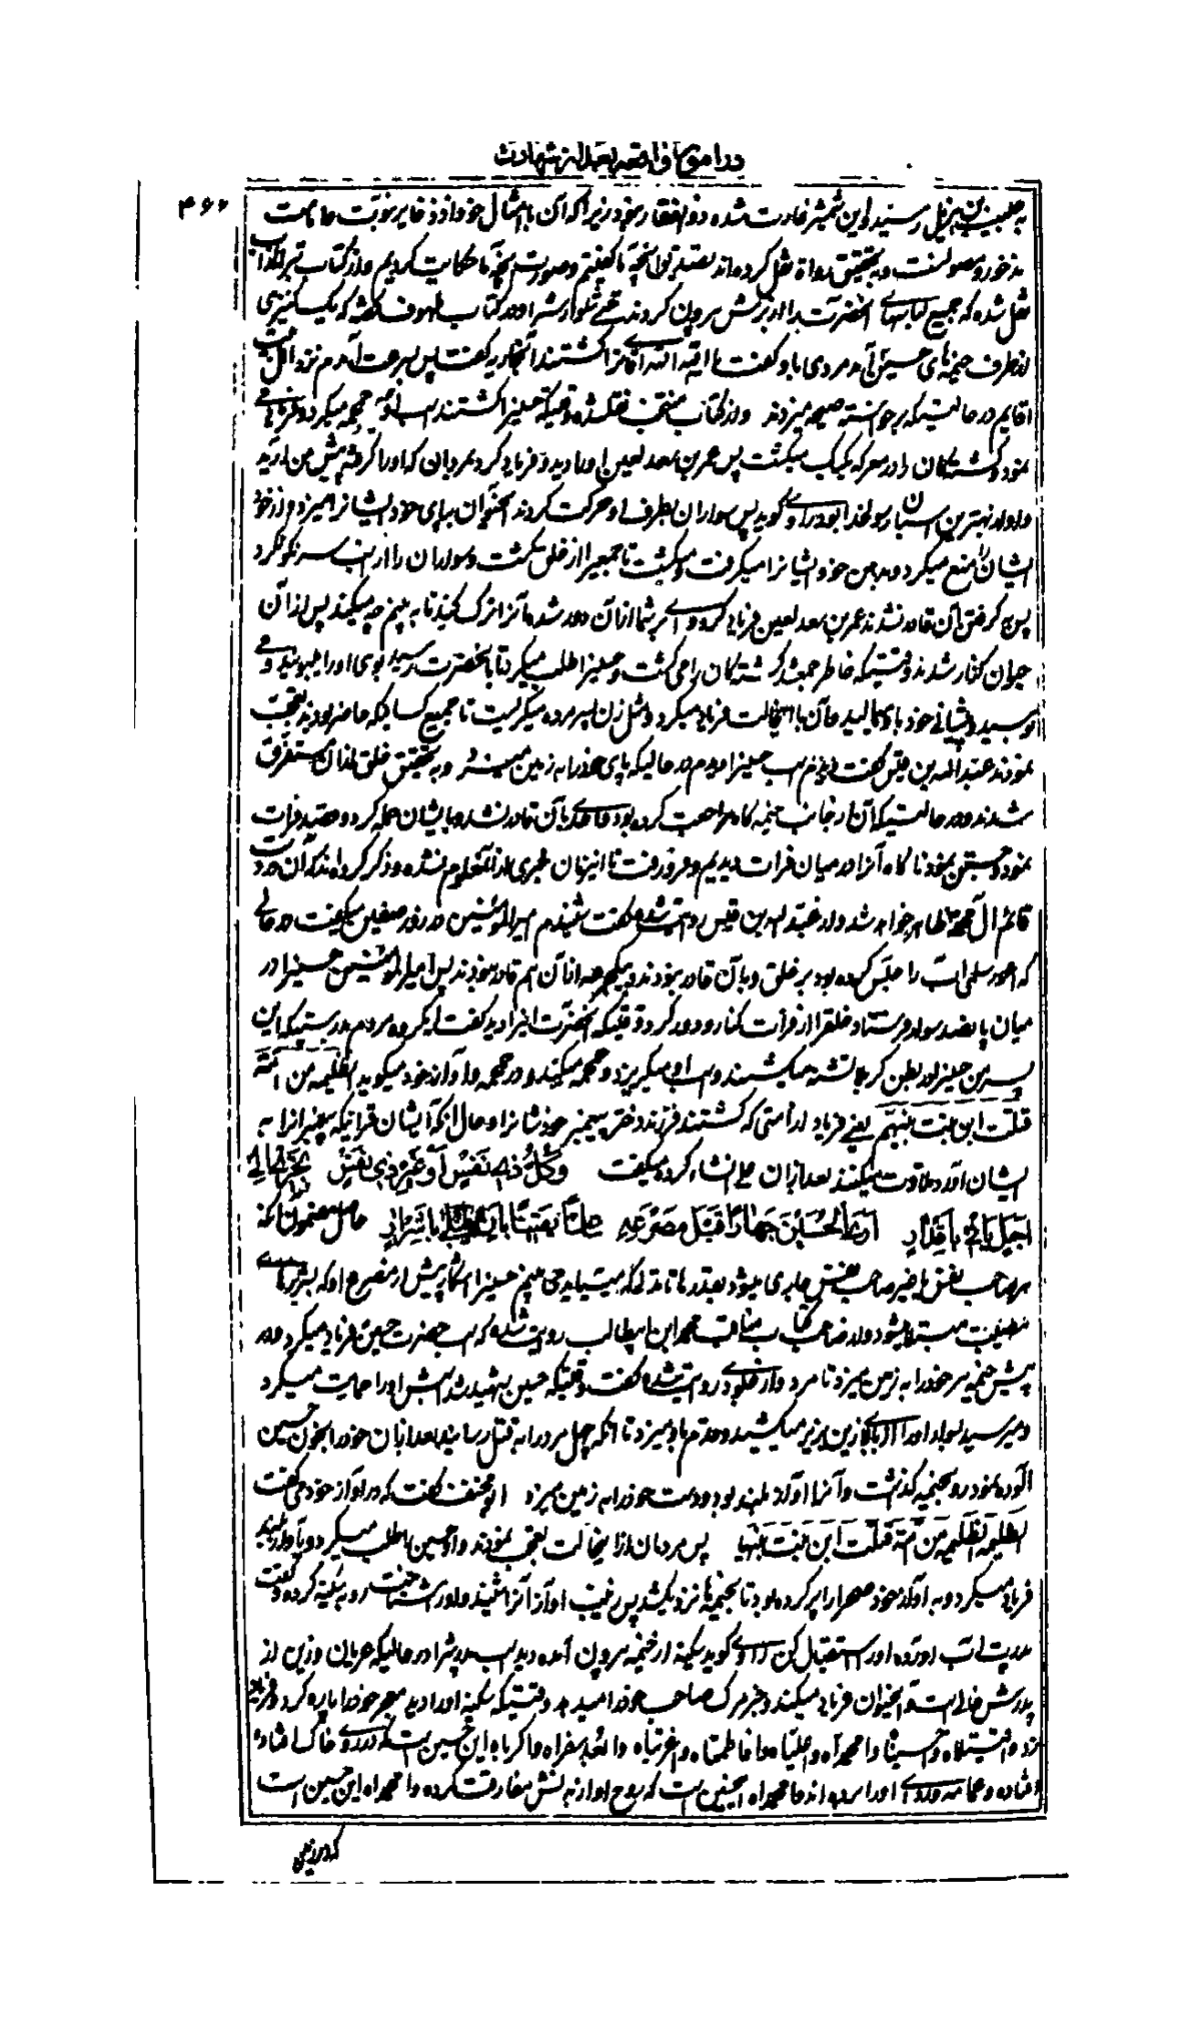 در امور واقعه بعد از شهادت
۴۶۶
به حبیب بن بدیل رسید و این شمشیر غارت شده ذو الفقار نبود زیرا که آن با امثال خود از ذخایر نبوت و امامت
مذخور و مصونست و بتحقیق رواة نقل کرده‌اند تصدیق آنچه ما گفتیم و صورت آنچه ما حکایت کردیم و از کتاب
نقل شده که جمیع لباسهای آنحضرت را از برش بیرون کردند حتی شلوارش را و در کتاب لهوف گفته که یک کنیزی
از طرف خیمه‌های حسین آمد مردی باو گفت یا امة الله آقای ترا کشتند آن جاریه گفت پس بسرعت آمدم نزد اهل بیت
آقایم در حالتیکه برخواسته صیحه میزدند و از کتاب منتخب نقلشده وقتیکه حسینرا کشتند اسب او حمحمه میکرد و فریاد
نمود و کشتگان را در معرکه یک یک میگشت پس عمر بن سعد لعین او را دید و فریاد کرد بمردان که او را گرفته پیش من آرید
و او از بهترین اسبان رسولخدا بود راوی گوید پس سواران بطرف او حرکت کردند آنحیوان بپای خود ایشانرا میزد و از خود
ایشان را منع میکرد و بدهن خود ایشانرا میگرفت و میکشت تا جمعیرا از خلق بکشت و سواران را از اسب سرنگون کرد
پس بر گرفتن آن قادر نشدند عمر بن سعد لعین فریاد کرد وای بر شما از آن دور شده آنرا ترک کنید تا به بینم چه میکند پس از آن
حیوان کنار شدند وقتیکه خاطر جمع شد کشتگان را می گشت و حسینرا طلب میکرد تا بآنحضرت رسید بوی او را میبوئید و
او را میبوسید و پیشانی خود باو میمالید و آن با اینحالت فریاد میکرد و مثل زن پسر مرده میگریست تا جمیع کسانیکه حاضر بودند تعجب
نمودند عبد الله بن قیس گفت دیدم اسب حسینرا در حالیکه پای خود را به زمین میزد و بتحقیق خلق از آن متفرق
شدند و در حالتیکه آن از جانب خیمه گاه مراجعت کرده بود و احدی بآن قادر نشد و بایشان حمله کرد و قصد فرات
نمود و جستن نمود ناگاه آنرا در میان فرات دیدیم و فرو رفت تا این زمان خبری از آن معلوم نشده و ذکر کرده‌اند که آن نزد
قائم آل محمد ظاهر خواهد شد و از عبد الله بن قیس روایت شده گفت شنیدم امیر المؤمنین در روز صفین میگفت در حالی
که اعور سلمی آب را حبس کرده بود بر خلق و بآن قادر نبودند و هیچ احدی از آن هم قادر نبودند پس امیر المؤمنین حسینرا در
میان پانصد سوار فرستاد خلقرا از فرات کنار و دور کرد وقتیکه آنحضرت اینرا دید گفت ایگروه مردم بدرستیکه این
پسر من حسینرا در بطن کربلا تشنه میکشند و اسب او میگریزد و حمحمه میکند و در حمحمه و آواز خود میگوید الظلیمه من امة
قتلت ابن بنت نبیهم یعنی فریاد از امتی که کشتند فرزند دختر پیغمبر خودشانرا و حال آنکه ایشان قرآنیکه پیغمبر آنرا به
ایشان آورد تلاوت میکنند بعد از آن علی انشاء کرده میگفت وَکُلُّ ذِی نَفَسٍ اَوْ غَیْرِ ذِی نَفَسٍ
اَری الحُسَیْنَ جِهاراً قَبْلَ مَصْرَعِهِ حاصل مضمون آنکه
هر صاحب نفس یا غیر صاحب نفس جاری میشود بقدر میبینم حسینرا آشکار پیش از مصرع او که
مصیبت مبتلا میشود و از صاحب کتاب مناقب محمد ابن ابیطالب روایت شده که اسب حضرت حسین فریاد میکرد و در
پیش خیمه سر خود را به زمین میزد تا مرد و از جلودی روایت شده گفت وقتیکه حسین شهید شد اسبش او را حمایت میکرد
و میرسید بسوار او را از بالای زین بزیر میکشید و قدم باو میزد تا آنکه چهل مرد را به قتل رسانید بعد از آن خود را بخون حسین
آلوده نمود رو بخیمه گذشت و آنرا آواز بلند بود و دست خود را به زمین میزد ابو مخنف گفت که در آواز خود می گفت
الظلیمه الظلیمه من امة قتلت ابن بنت نبیها پس مردمان از اینحالت تعجب نمودند و او حسین را طلب میکرد و بآواز بلند
فریاد میکرد و به آواز خود صحرا را پر کرده بود تا بخیمه‌ها نزدیک شد پس زینب آواز آنرا شنید و او را شناخت رو به سکینه کرده و گفت
پدرت آب آورده او را استقبال کن راوی گوید سکینه از خیمه بیرون آمده دید اسب پدرش را در حالیکه عریان و زین از
پدرش خالی است و آنحیوان فریاد میکند و خبر مرگ صاحب خود را میدهد وقتیکه سکینه او را دید معجر خود را پاره کرد و فریاد
زد وا قتیلاه وا حسیناه وا محمداه وا علیاه وا فاطمتاه وا غربتاه وا بعد سفراه وا کرباه این حسین است که در روی خاک افتاده
افتاده و عمامه و ردای او را برده اند وا محمداه این حسین است که روح او از بدنش مفارقت کرده وا محمداه این حسین است